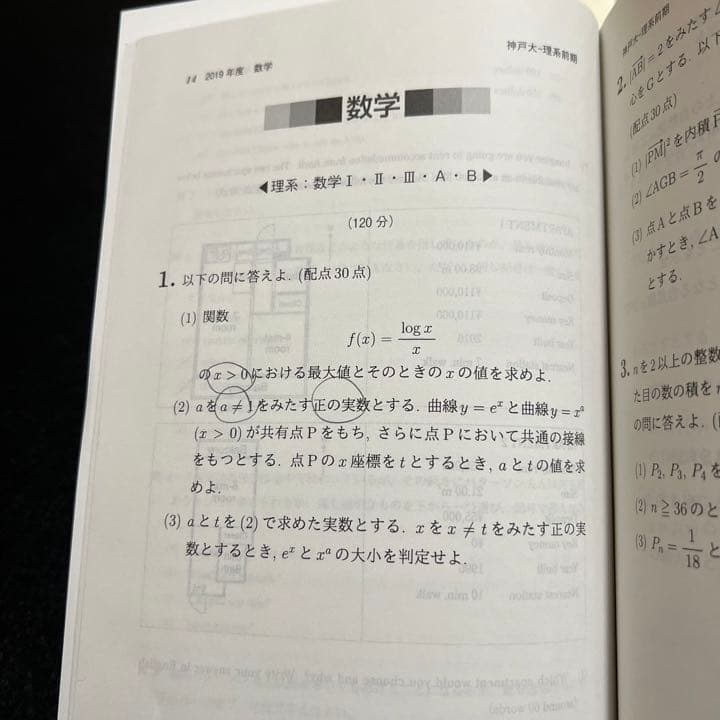 14 2019年度 数学
神戸大-理系前期
数学
◀理系:数学Ⅰ・Ⅱ・Ⅲ・A・B▶
(120分)
1. 以下の問に答えよ.(配点30点)
(1) 関数
f(x) = log x / x
のx > 0における最大値とそのときのxの値を求めよ.
(2) aをa ≠ 1をみたす正の実数とする. 曲線y = e^x と曲線y = x^a
(x > 0) が共有点Pをもち, さらに点Pにおいて共通の接線
をもつとする. 点Pのx座標をtとするとき, aとtの値を求
めよ.
(3) aとtを(2)で求めた実数とする. xをx ≠ tをみたす正の実
数とするとき, e^x と x^a の大小を判定せよ.
神戸大-理系前期
2. |AB| = 2をみたす
心をGとする. 以下
(配点30点)
(1) |PM|^2を内積
(2) ∠AGB = π/2 の
(3) 点Aと点Bを
かすとき, ∠A
とする.
3. nを2以上の整数
た目の数の積を
の問に答えよ.
(1) P2, P3, P4 を
(2) n ≧ 36のと
(3) Pn = 1/18 と